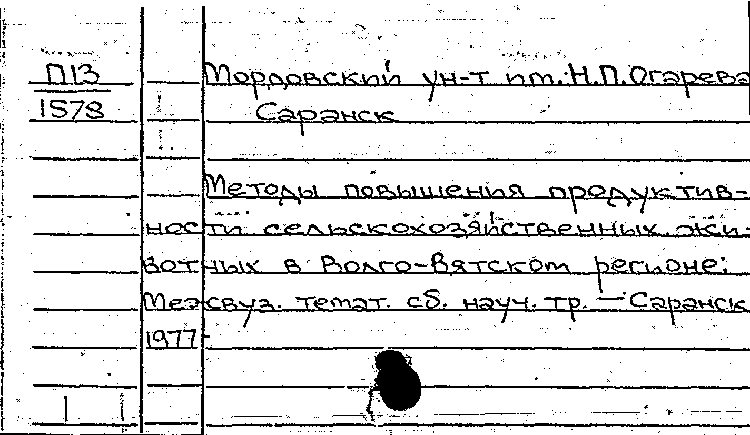 П13
1578
Мордовский ун-т им. Н.П.Огарева
Саранск
Методы повышения продуктив-
ности сельскохозяйственных жи-
вотных в Волго-Вятском регионе:
Межвуз. темат. сб. науч. тр. — Саранск
1977-